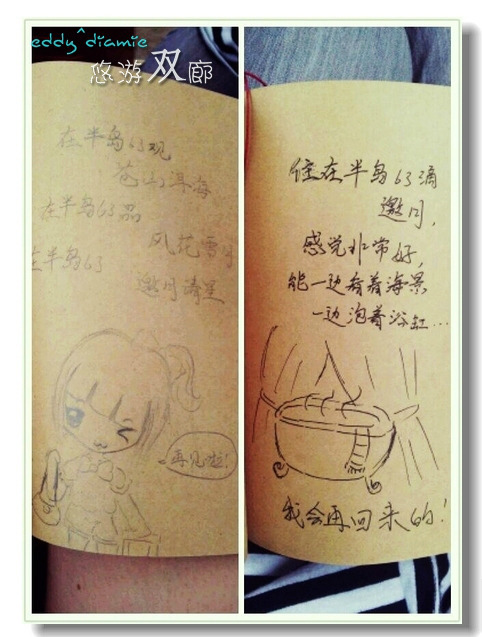 eddy^diamie
悠游双廊
在半岛63观
苍山洱海
在半岛63品
风花雪月
在半岛63
邀月清星
再见啦!
住在半岛63滴
邀月,
感觉非常好,
能一边看着海景
一边泡着浴缸...
我会再回来的!